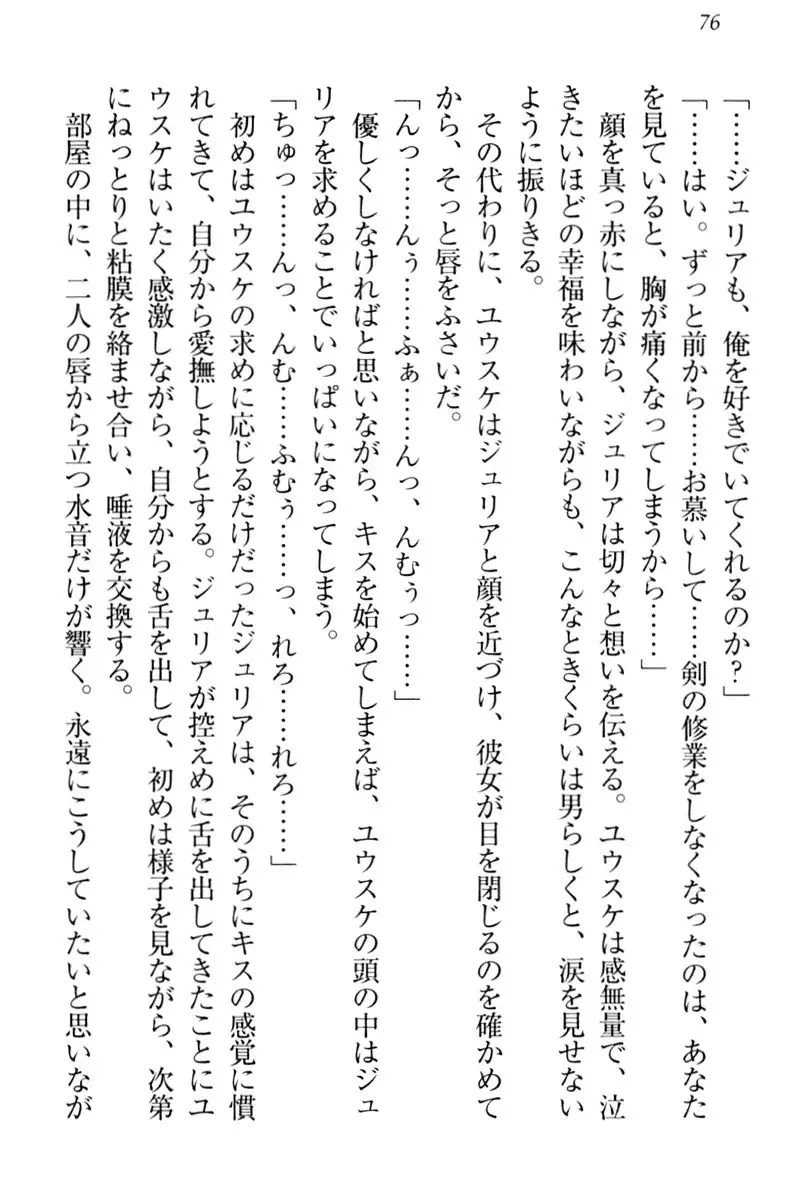 76
「……ジュリアも、俺を好きでいてくれるのか？」
「……はい。ずっと前から……お慕いして……剣の修業をしなくなったのは、あなた
を見ていると、胸が痛くなってしまうから……」
顔を真っ赤にしながら、ジュリアは切々と想いを伝える。ユウスケは感無量で、泣
きたいほどの幸福を味わいながらも、こんなときくらいは男らしくと、涙を見せない
ように振りきる。
その代わりに、ユウスケはジュリアと顔を近づけ、彼女が目を閉じるのを確かめて
から、そっと唇をふさいだ。
「んっ……んぅ……ふぁ……んっ、んむぅっ……」
優しくしなければと思いながら、キスを始めてしまえば、ユウスケの頭の中はジュ
リアを求めることでいっぱいになってしまう。
「ちゅっ……んっ、んむ……ふむぅ……っ、れろ……れろ……」
初めはユウスケの求めに応じるだけだったジュリアは、そのうちにキスの感覚に慣
れてきて、自分から愛撫しようとする。ジュリアが控えめに舌を出してきたことにユ
ウスケはいたく感激しながら、自分からも舌を出して、初めは様子を見ながら、次第
にねっとりと粘膜を絡ませ合い、唾液を交換する。
部屋の中に、二人の唇から立つ水音だけが響く。永遠にこうしていたいと思いなが